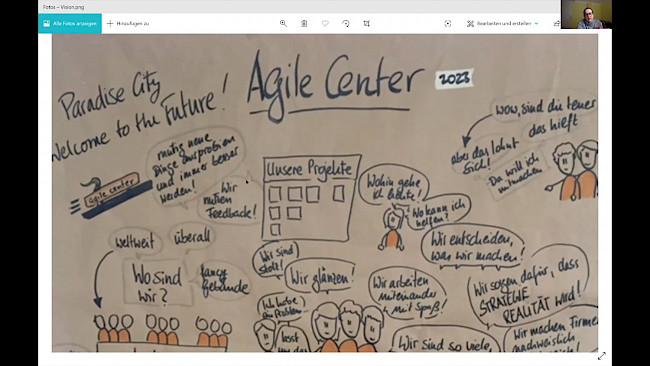 Fotos – Vision.png
Alle Fotos anzeigen
Hinzufügen zu
Bearbeiten und erstellen
Paradise City
Welcome to the Future!
Agile Center
2023
mutig neue
Dinge ausprobieren
und immer besser
werden!
agile center
Wir
nutzen
Feedback!
Unsere Projekte
Wohin gehe
ich heute?
Wo kann ich
helfen?
wow, sind die teuer
das hieft
aber das lohnt
sich!
Da will ich
mitmachen
weltweit
überall
Wo sind
wir?
fancy
Gebäude
Wir sind
stolz!
Wir glänzen!
Wir arbeiten
miteinander
mit Spaß!
Wir entscheiden,
was wir machen!
Wir sorgen dafür, dass
STRATEGIE
REALITÄT wird!
Ich habe
ein Problem
lasst
Wir sind so viele,
Wir machen Firmen
nachweislich